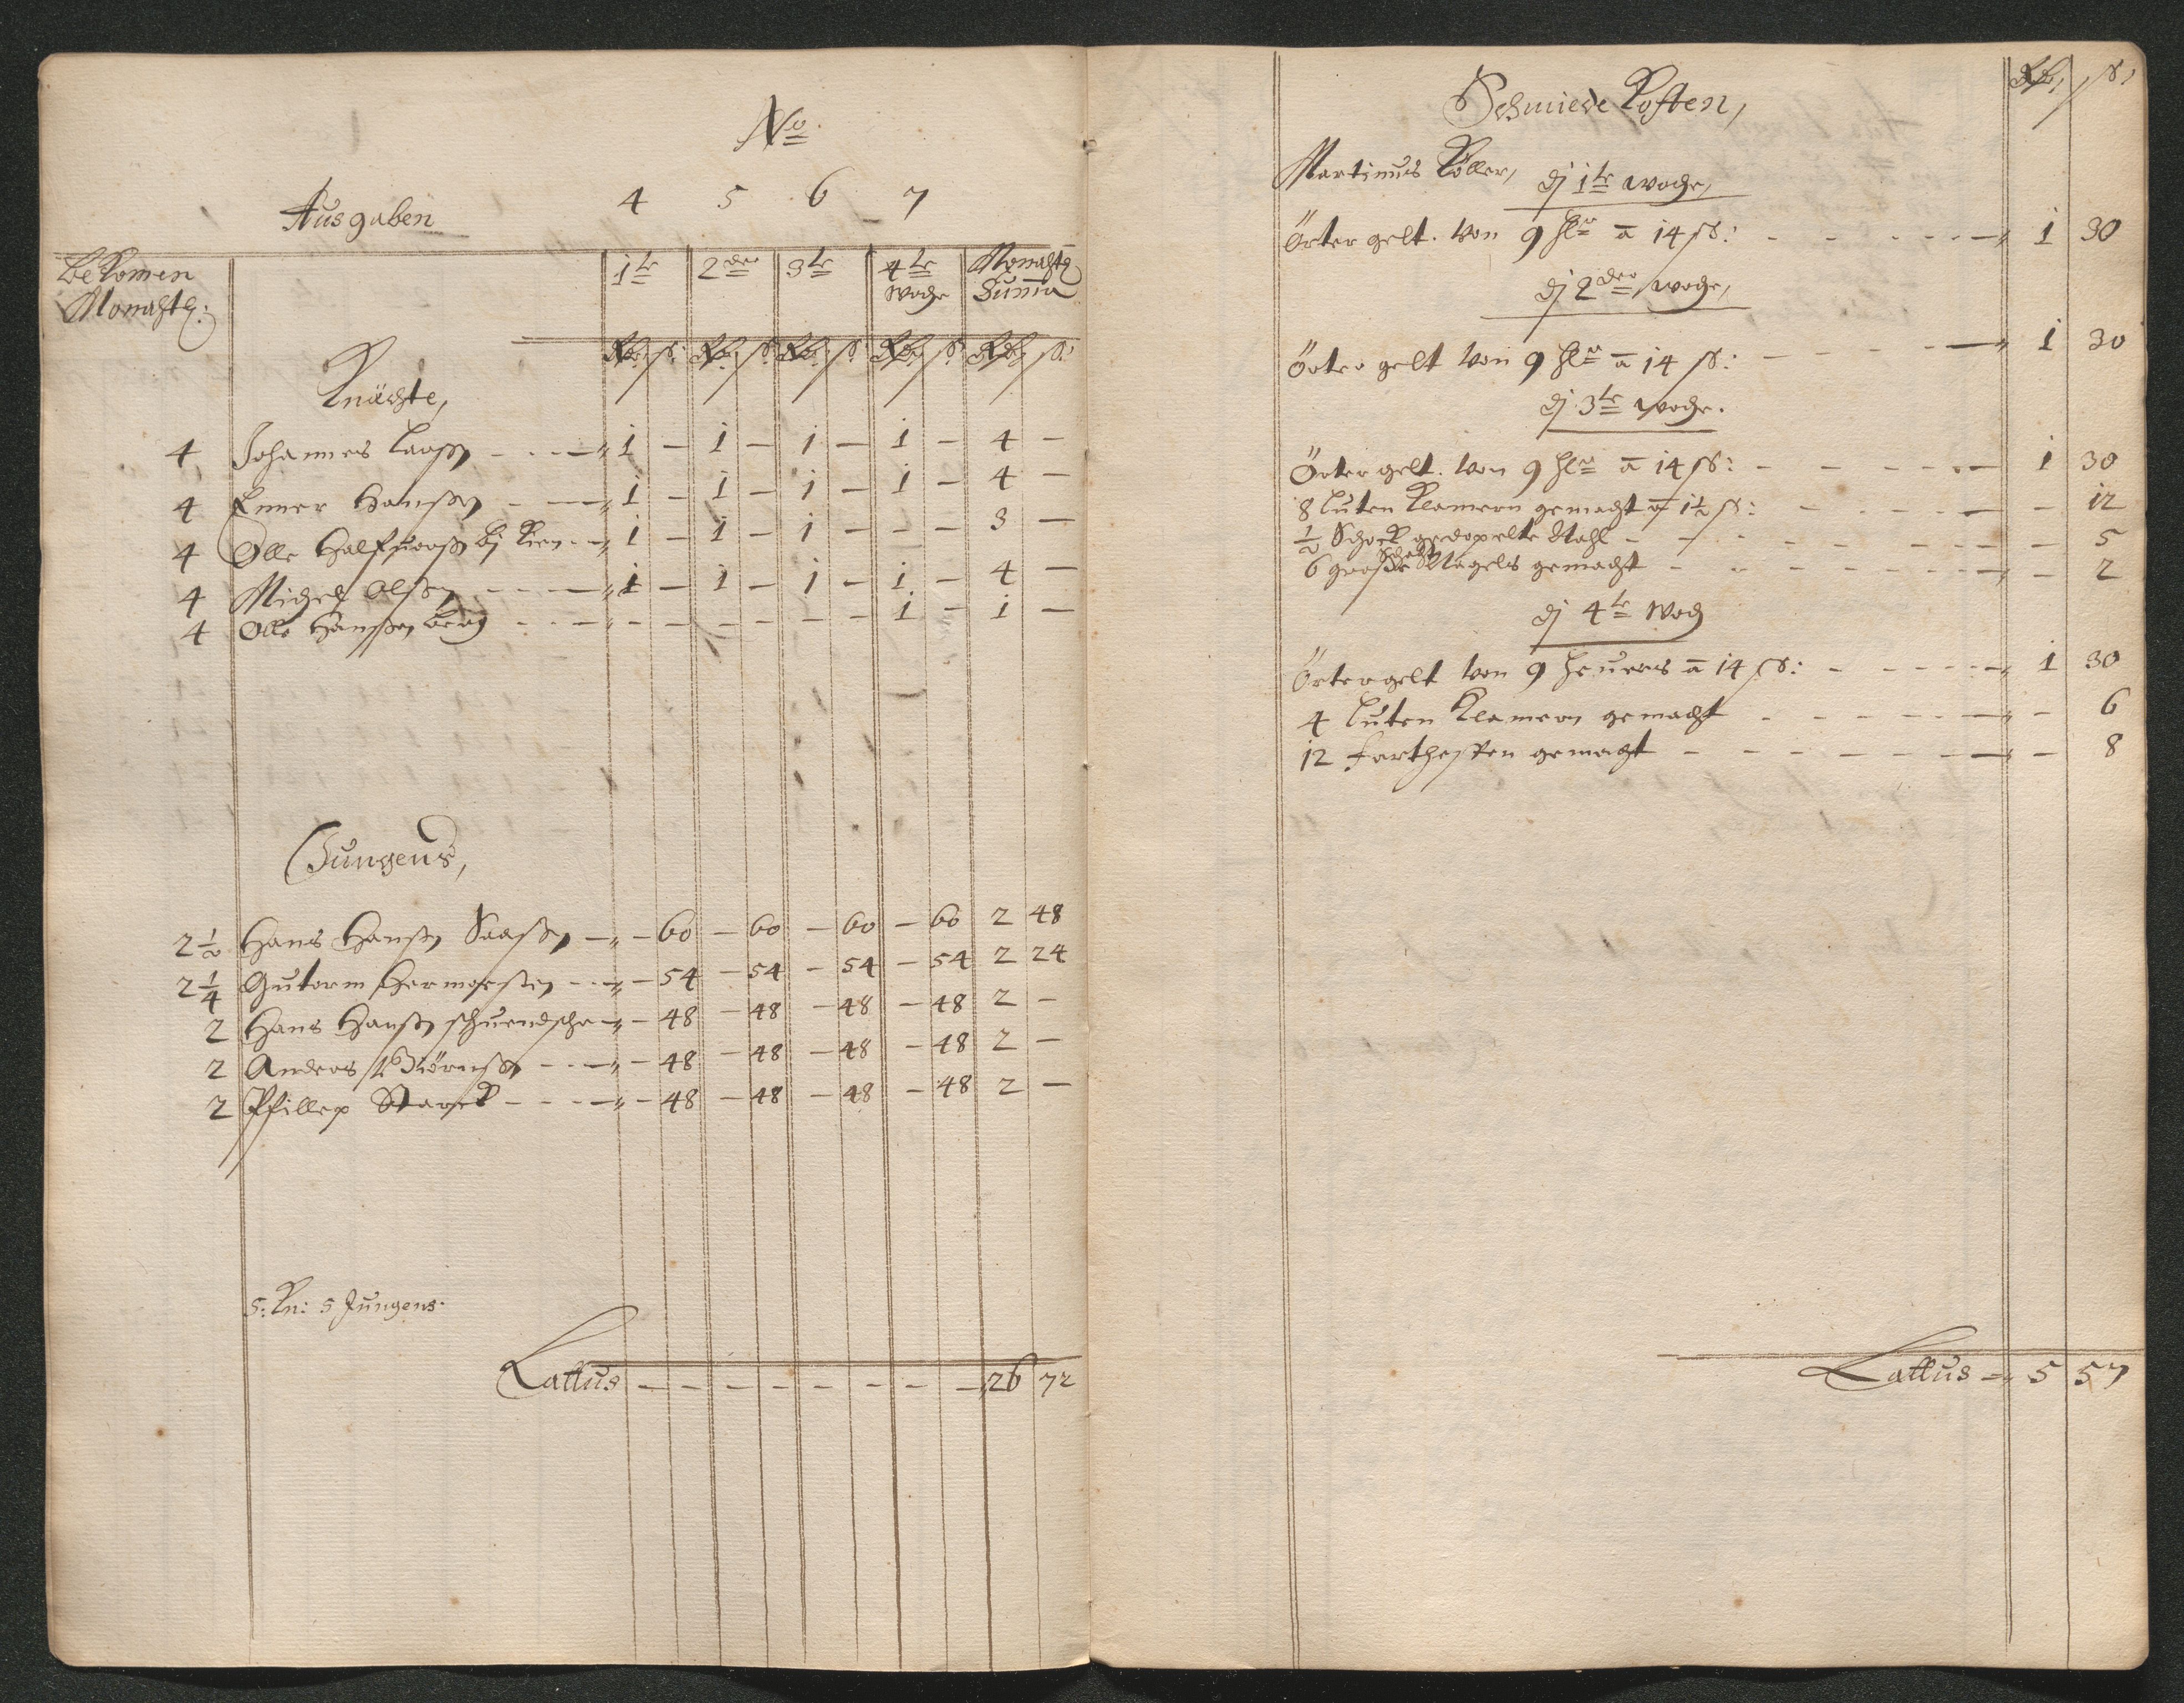 No
Ausgaben 4 5 6 7
Bekomen Monahtl: 1te 2der 3te 4te Woche Monahtl Summa
Rdr ß: Rdr ß: Rdr ß: Rdr ß: Rdr ß:
Knächte,
4 Johannes Larß - - - 1 - 1 - 1 - 1 - 4 -
4 Enner Hanßen - - - 1 - 1 - 1 - 1 - 4 -
4 Olle Halfvorß bij Kirn - - 1 - 1 - 1 - - - 3 -
4 Michel Olßen - - - 1 - 1 - 1 - 1 - 4 -
4 Olle Hanßen Berg - - - - - - - - - 1 - 1 -
Jungens,
2 1/2 Hans Hanßen - - 60 - 60 - 60 - 60 2 48
2 1/4 Gutorm Hermanßen - - - 54 - 54 - 54 - 54 2 24
2 Hans Hanßen - 48 - 48 - 48 - 48 2 -
2 Anders Biörnßen - - - 48 - 48 - 48 - 48 2 -
2 Pfillep Starck - - - - 48 - 48 - 48 - 48 2 -
5: Kn: 5 Jungens.
Lattus - - - - - - - - 26 72
Schmiede Kosten, Rdr ß:
Martinus Köller,
dj 1te woche,
Örter gelt. von 9 her a 14 ß: - - - - - 1 30
dj 2der woche,
Örter gelt von 9 her a 14 ß: - - - - 1 30
dj 3te woche.
Örter gelt. von 9 her a 14 ß: - - - - - 1 30
8 Luten Klamern gemacht a 1 1/2 ß: - - - - - 12
1/2 Schock gedopelte Nahl - - - - - - - 5
6 große Nagels gemacht - - - - - - - 2
dj 4te Woch
Örtergelt von 9 heuers a 14 ß: - - - - - 1 30
4 Luten Klamern gemacht - - - - - - - 6
12 gemacht - - - - - - - - 8
Lattus - 5 57